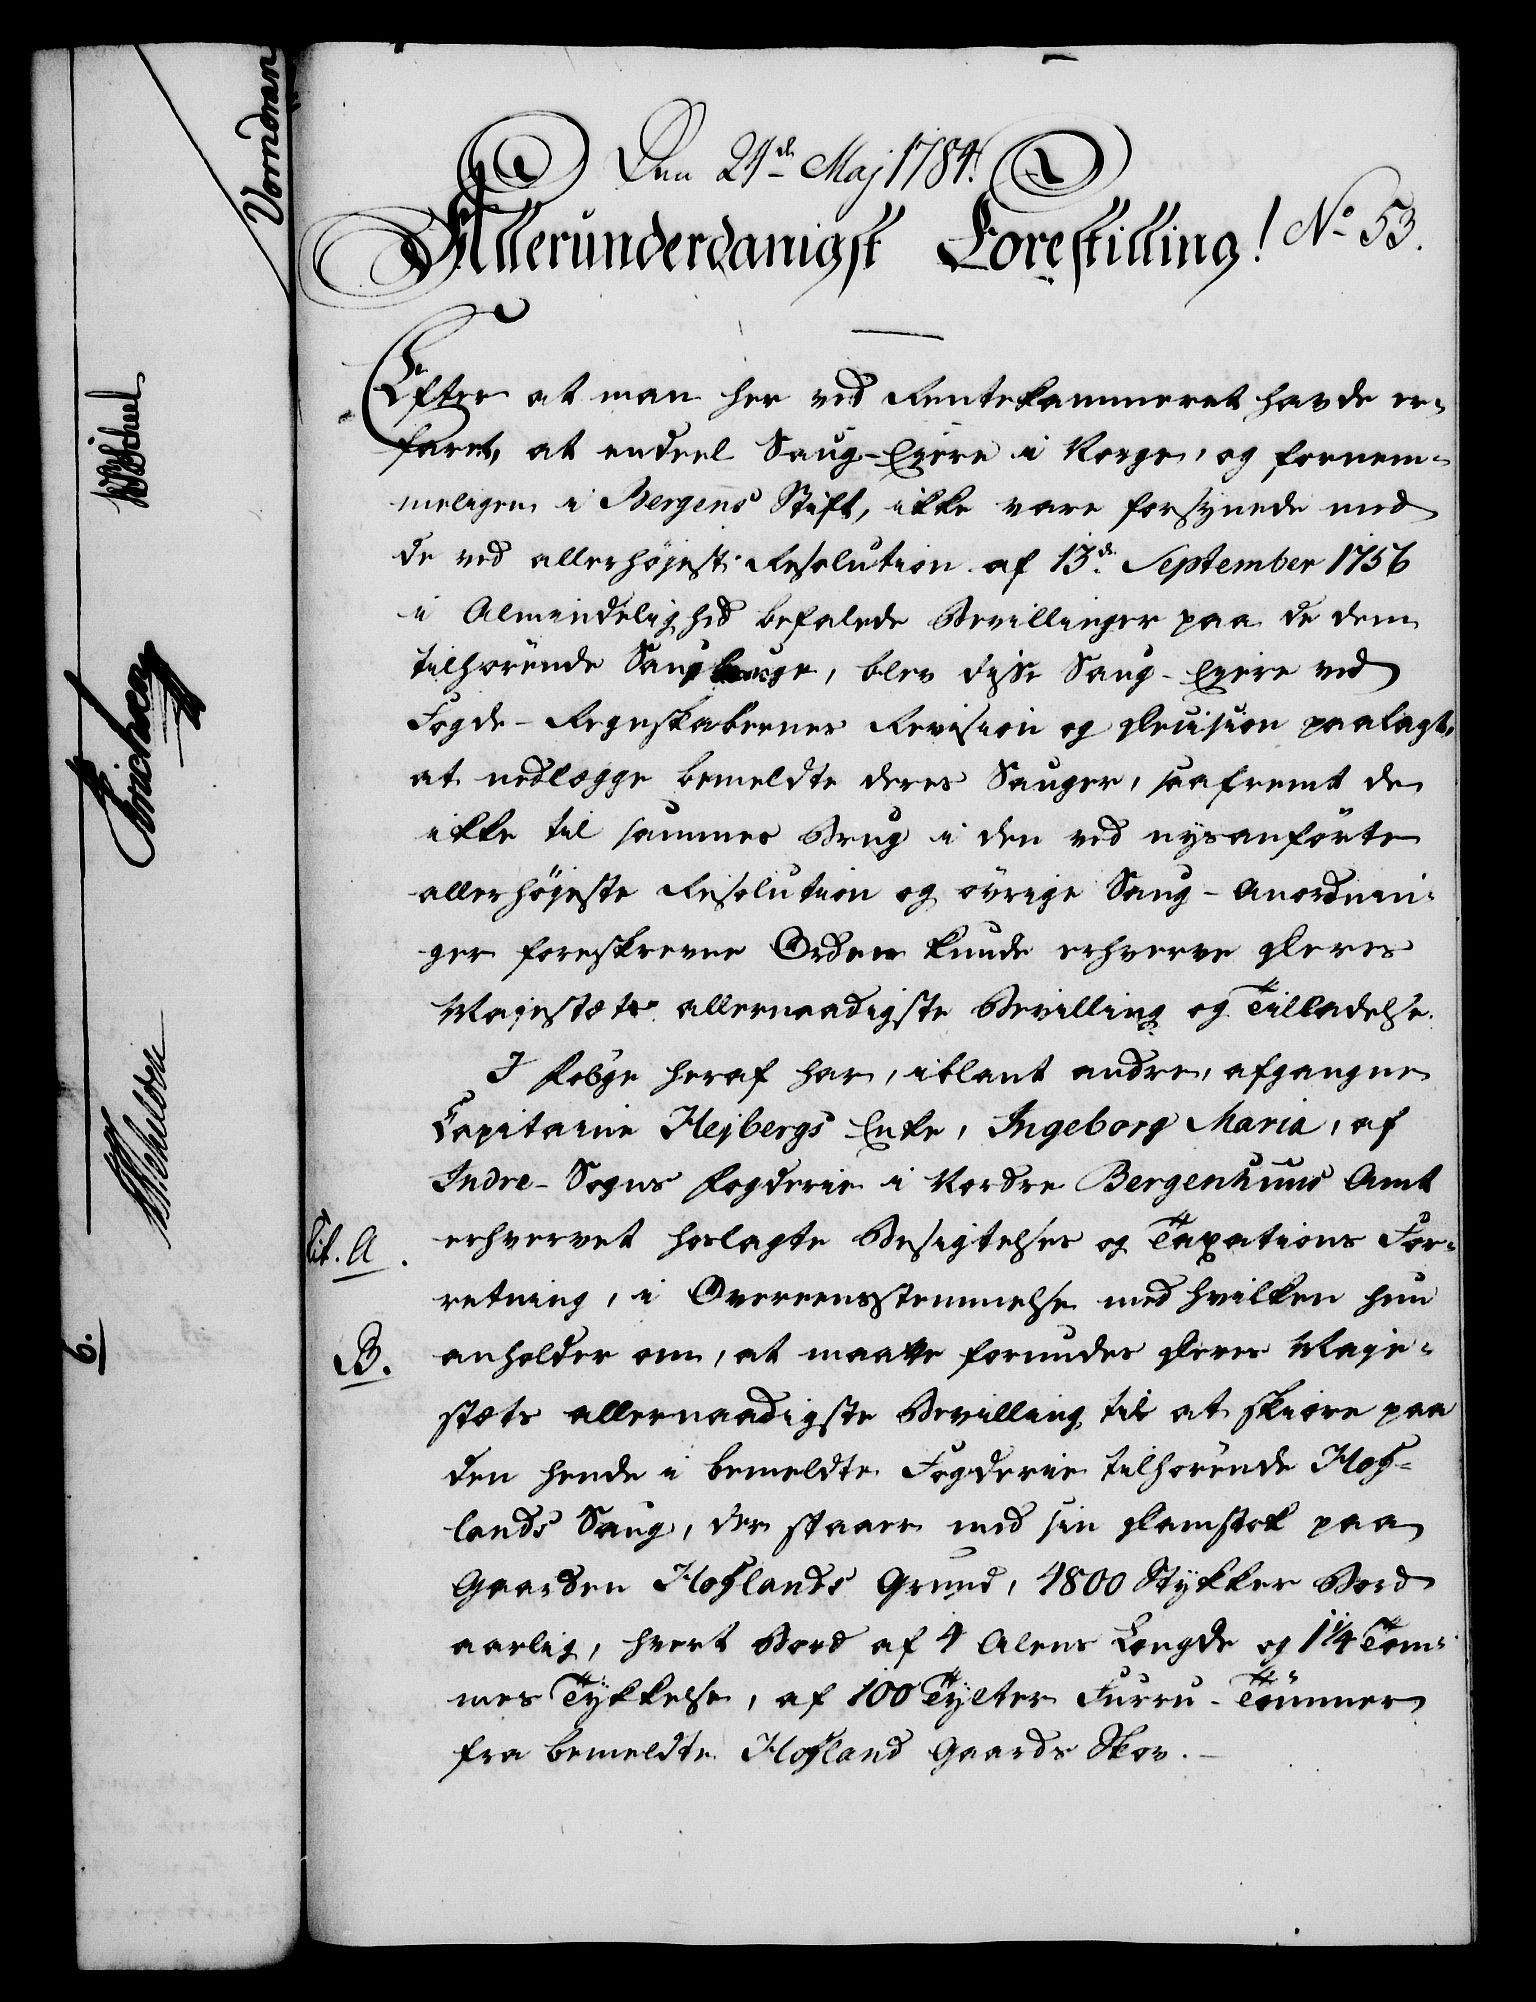 Den 24de Maj 1784.
Allerunderdanigst Forestilling! No 53.
Efter at man her ved Rentekammeret havde er-
faret, at endeel Saug-Ejere i Norge, og fornem-
meligen i Bergens Stift, ikke vare forsynede med
de ved allerhöjest Resolution af 13de September 1756
i Almindelighed befalede Bevillinger paa de dem
tilhörende Saugbruge, blev disse Saug-Ejere ved
Fogde-Regnskabernes Revision og Decision paalagt,
at nedlægge bemeldte deres Sauger, saafremt de
ikke til sammes Brug i den ved nysanförte
allerhöjeste Resolution og övrige Saug-Anordnin-
ger foreskrevne Orden kunde erhverve Deres
Majestæts allernaadigste Bevilling og Tilladelse.
I Fölge heraf har, iblant andre, afgangne
Capitaine Hejbergs Enke, Ingeborg Maria, af
Indre-Sogns Fogderie i Nordre Bergenhuus Amt
Lit. A. erhvervet hoslagte Besigtelses og Taxations For-
retning, i Overeensstemmelse med hvilken hun
B. anholder om, at maatte forundes Deres Maje-
stæts allernaadigste Bevilling til at skiære paa
den hende i bemeldte Fogderie tilhörende Hof-
lands Saug, der staaer med sin Damstok paa
Gaarden Hoflands Grund, 4800 Stykker Bord
aarlig, hvert Bord af 4 Alens Længde og 1 1/4 Tom-
mes Tykkelse, af 100 Tylter Furru-Tömmer
fra bemeldte Hofland Gaards Skov.
Vorndran
Erichsen
6.